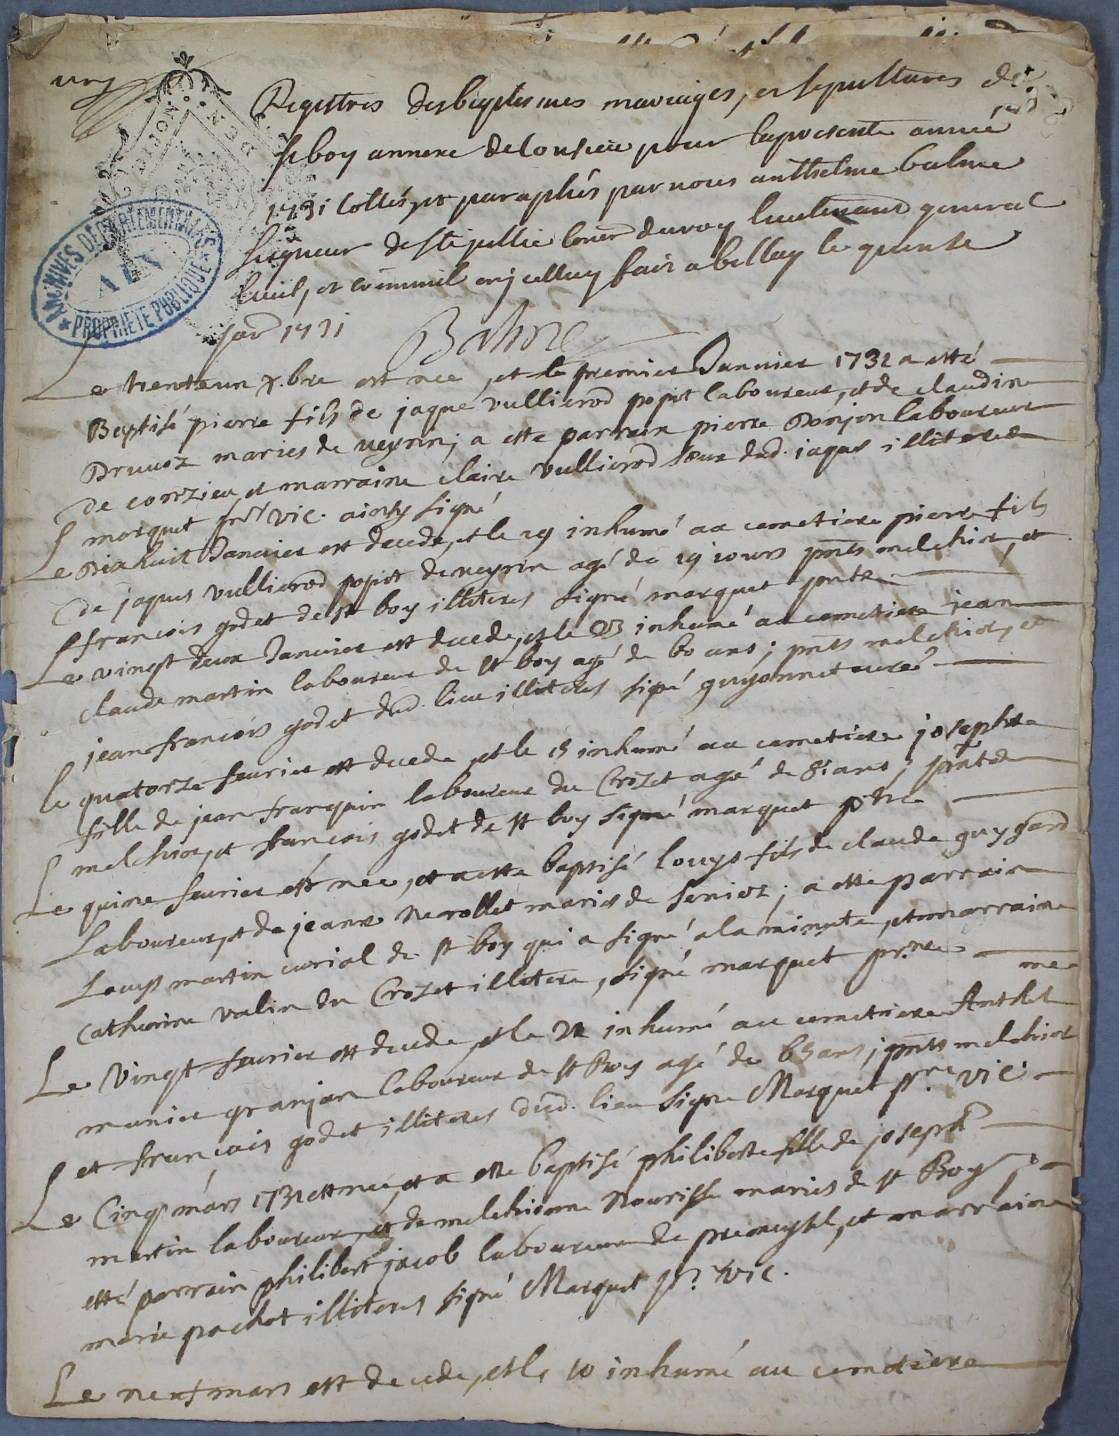 Registres des baptesmes mariages, et sepultures de
st boy annexe de lousieu pour la presente année
1731 Cottés, et paraphés par nous anthelme balme
seigneur de ste jullie conser du roy lieutenant general
civil, et criminel enj celluy fait a belley le quinse
janr 1731 Balme
ARCHIVES DEPARTEMENTALES
AIN
PROPRIETE PUBLIQUE
Le trenteun xbre est nee, et le premier Janvier 1732 a etté
Baptisé pierre fils de jaque vullierod popot laboureur, et de claudine
Druvoz maries de neyrin; a ette parrain pierre Donjon laboureur
de conzieu, et marraine claire vullierod soeur dud. jaques illiteres
marquet prre vic. ainsy signé
Le Dix huit Janvier est decede, et le 19 inhumé au cemetiere pierre fils
de jaques vullierod popot de neyrin agé de 19 jours pnts melchior, et
francois godet de st boy illiteres signé marquet prtre
Le vingt deux Janvier est decede, et le 23 inhumé au cemetiere jean
claude martin laboureur de st boy agé de 60 ans; pnts melchior, et
jean francois godet dud. lieu illiteres signé guyonnet curé
Le quatorze fevrier est decede, et le 15 inhumé au cemetiere josephte
fille de jean franquin laboureur du Crozet agé de 8 ans; pnts
melchior, et francois godet de st boy signé marquet ptre
Le quine fevrier est nee, et a ette baptisé louys fils de claude guy gard
Laboureur, et de jeane nerollet maries de senior; a ette parrain
Louys martin curial de st boy qui a signé a la minute, et marraine
catherine valin du Crozet illitere, signé marquet prre
Le vingt fevrier est decede, et le 21 inhumé au cemetiere Anthel me
munier granjan laboureur de st Boy agé de 65 ans; pnts melchior
et francois godet illiteres dud. lieu signé Marquet prre vic.
Le Cinq mars 1732 est nee, et a ette baptisé philiberte fille de joseph
martin laboureur, et de melchionne Nourisse maries de st Boy; a
etté parrain philibert jacob laboureur de premeysel, et marraine
marie pochet illiteres signé Marquet pr. vic.
Le neuf mars est decede, et le 10 inhumé au cemetiere